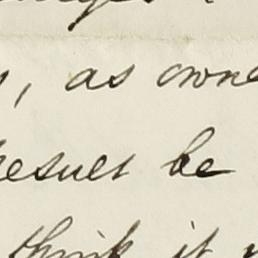 , as owne
result be
think it